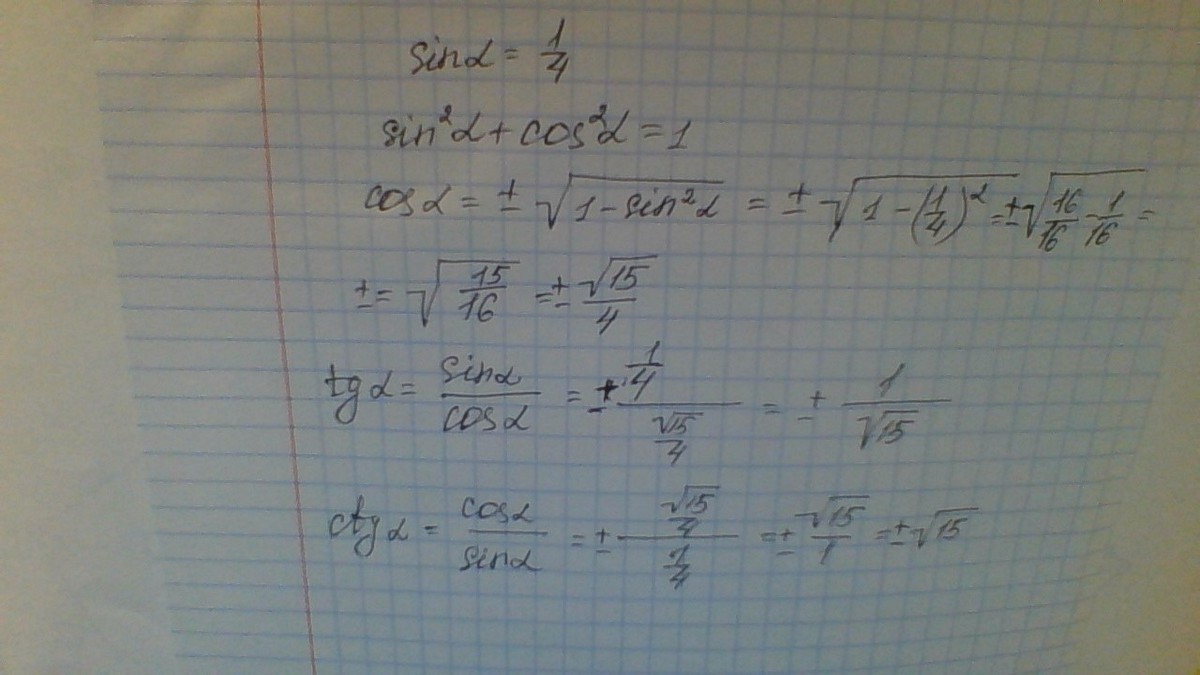 sinα = 1/4
sin²α + cos²α = 1
cosα = ± √(1 - sin²α) = ± √(1 - (1/4)²) = ± √(16/16 - 1/16) =
± = √(15/16) = ± √15/4
tgα = sinα/cosα = ± (1/4)/(√15/4) = ± 1/√15
ctgα = cosα/sinα = ± (√15/4)/(1/4) = ± √15/1 = ± √15